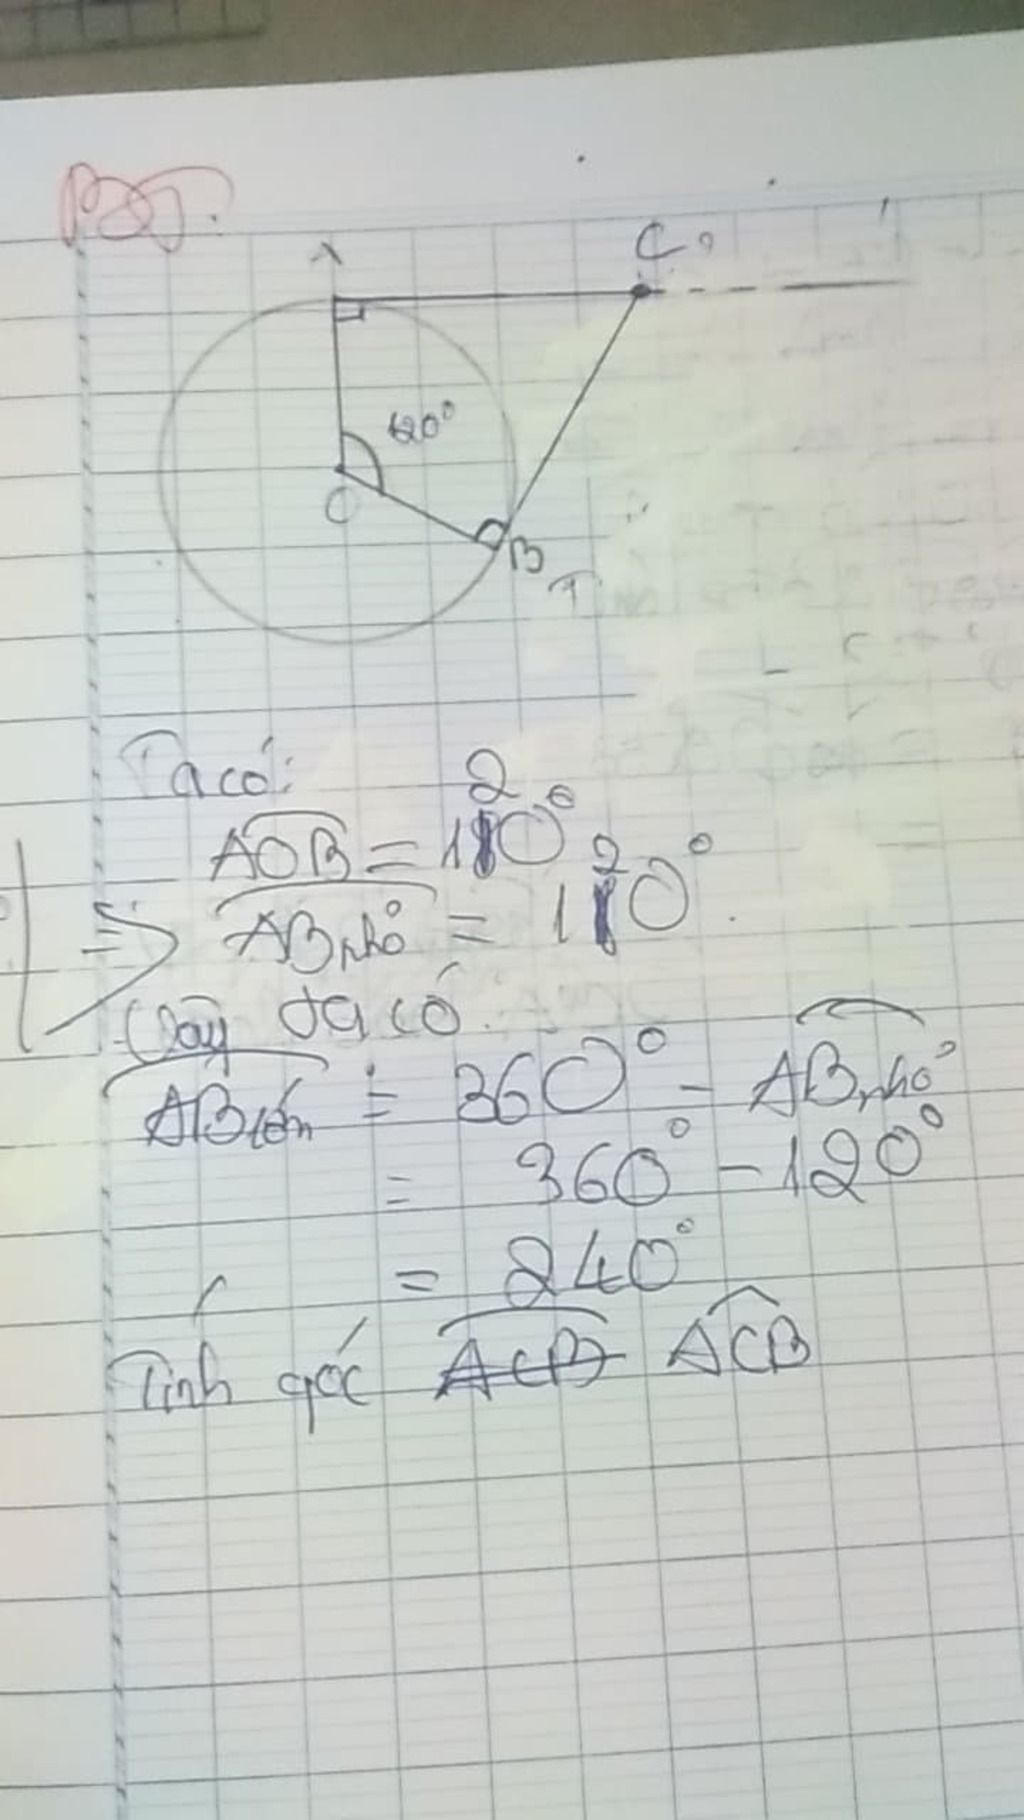 A
C
120°
O
B
Ta có:
2
AOB = 110°
2
=> AB nhỏ = 110°.
Vậy ta có
AB lớn = 360° - AB nhỏ
= 360° - 120°
= 240°
Tính góc ACB ACB